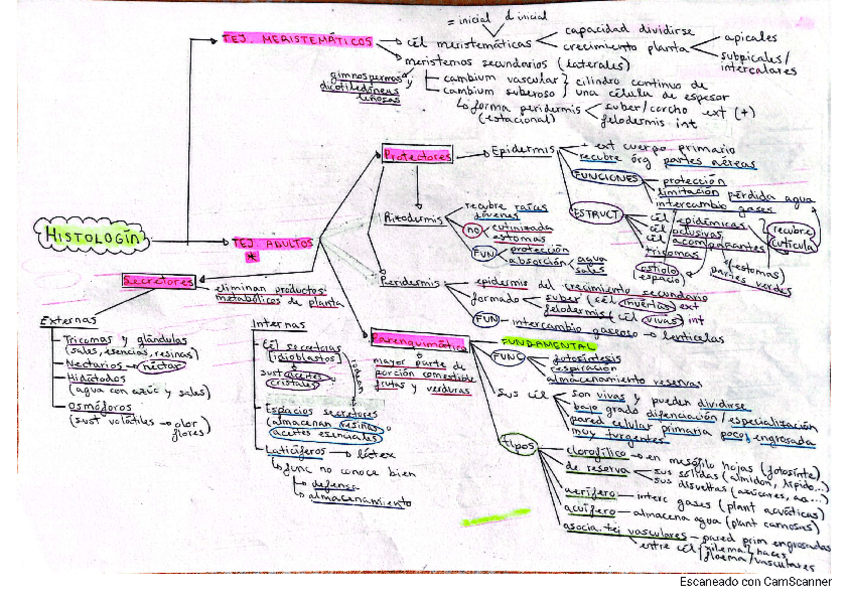 = inicial d inicial
TEJ. MERISTEMÁTICOS
cél meristemáticas
capacidad dividirse
crecimiento planta
apicales
subpicales/
intercalares
meristemos secundarios (laterales)
gimnospermas y
dicotiledóneas
leñosas
cambium vascular
cambium suberoso
cilindro continuo de
una célula de espesor
forma peridermis
(estacional)
suber/corcho ext (+)
felodermis int
HISTOLOGÍA
TEJ ADULTOS
*
Protectores
Epidermis
+ ext cuerpo primario
recubre órg partes aéreas
FUNCIONES
protección
limitación pérdida agua
intercambio gases
ESTRUCT
cél epidérmicas
cél oclusivas
cél acompañantes
tricomas
estiolo
espacio)
recubre
cutícula
(estomas)
partes verdes
Rizodermis
recubre raíces
jóvenes
no
cutinizada
estomas
FUN
protección
absorción
agua
sales
Peridermis
epidermis del crecimiento secundario
formado
suber (cél muertas) ext
felodermis (cél vivas) int
FUN
intercambio gaseoso → lenticelas
Secretores
eliminan productos
metabólicos de planta
Externas
Tricomas y glándulas
(sales, esencias, resinas)
Nectarios → néctar
Hidátodos
(agua con azúc y sales)
Osmóforos
(sust volátiles → olor
flores
Internas
Cél secretoras
(idioblastos)
sust aceites
cristales
Espacios secretores
(almacenan resinas,
aceites esenciales
Laticíferos → látex
func no conoce bien
defensa
almacenamiento
Parenquimático
mayor parte de
porción comestible
frutas y verduras
FUNDAMENTAL
FUNC
fotosíntesis
respiración
almacenamiento reservas
sus cél
son vivas y pueden dividirse
bajo grado difenciación/especialización
pared celular primaria poco engrosada
muy turgentes
tipos
clorofílico → en mesófilo hojas (fotosínte)
de reserva
sus sólidas (almidón, lípido...)
sus disueltas (azúcares, aa...)
aerífero — interc gases (plant acuáticas)
acuífero — almacena agua (plant carnosas)
asocia. tej vasculares — pared prim engrosadas
entre cél xilema/haces
floema/vasculares
Escaneado con CamScanner